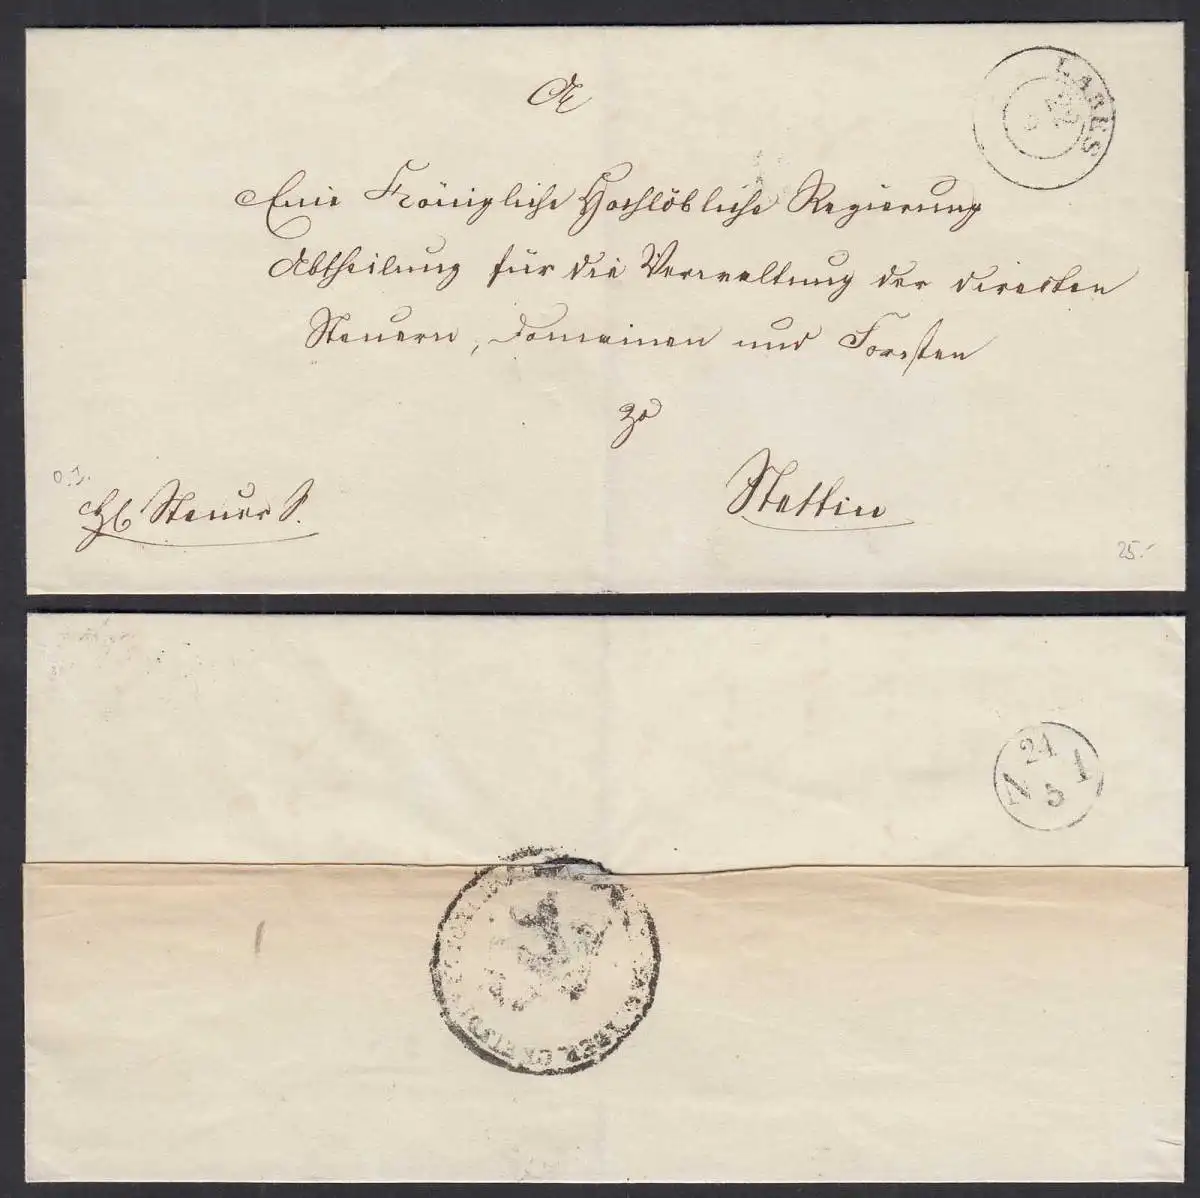 An
LABES
Eine Königliche Hochlöbliche Regierung
Abtheilung für die Verwaltung der directen
Steuern, Domainen und Forsten
zu
Stettin
Steuer S.
25.-
21
N 1
5